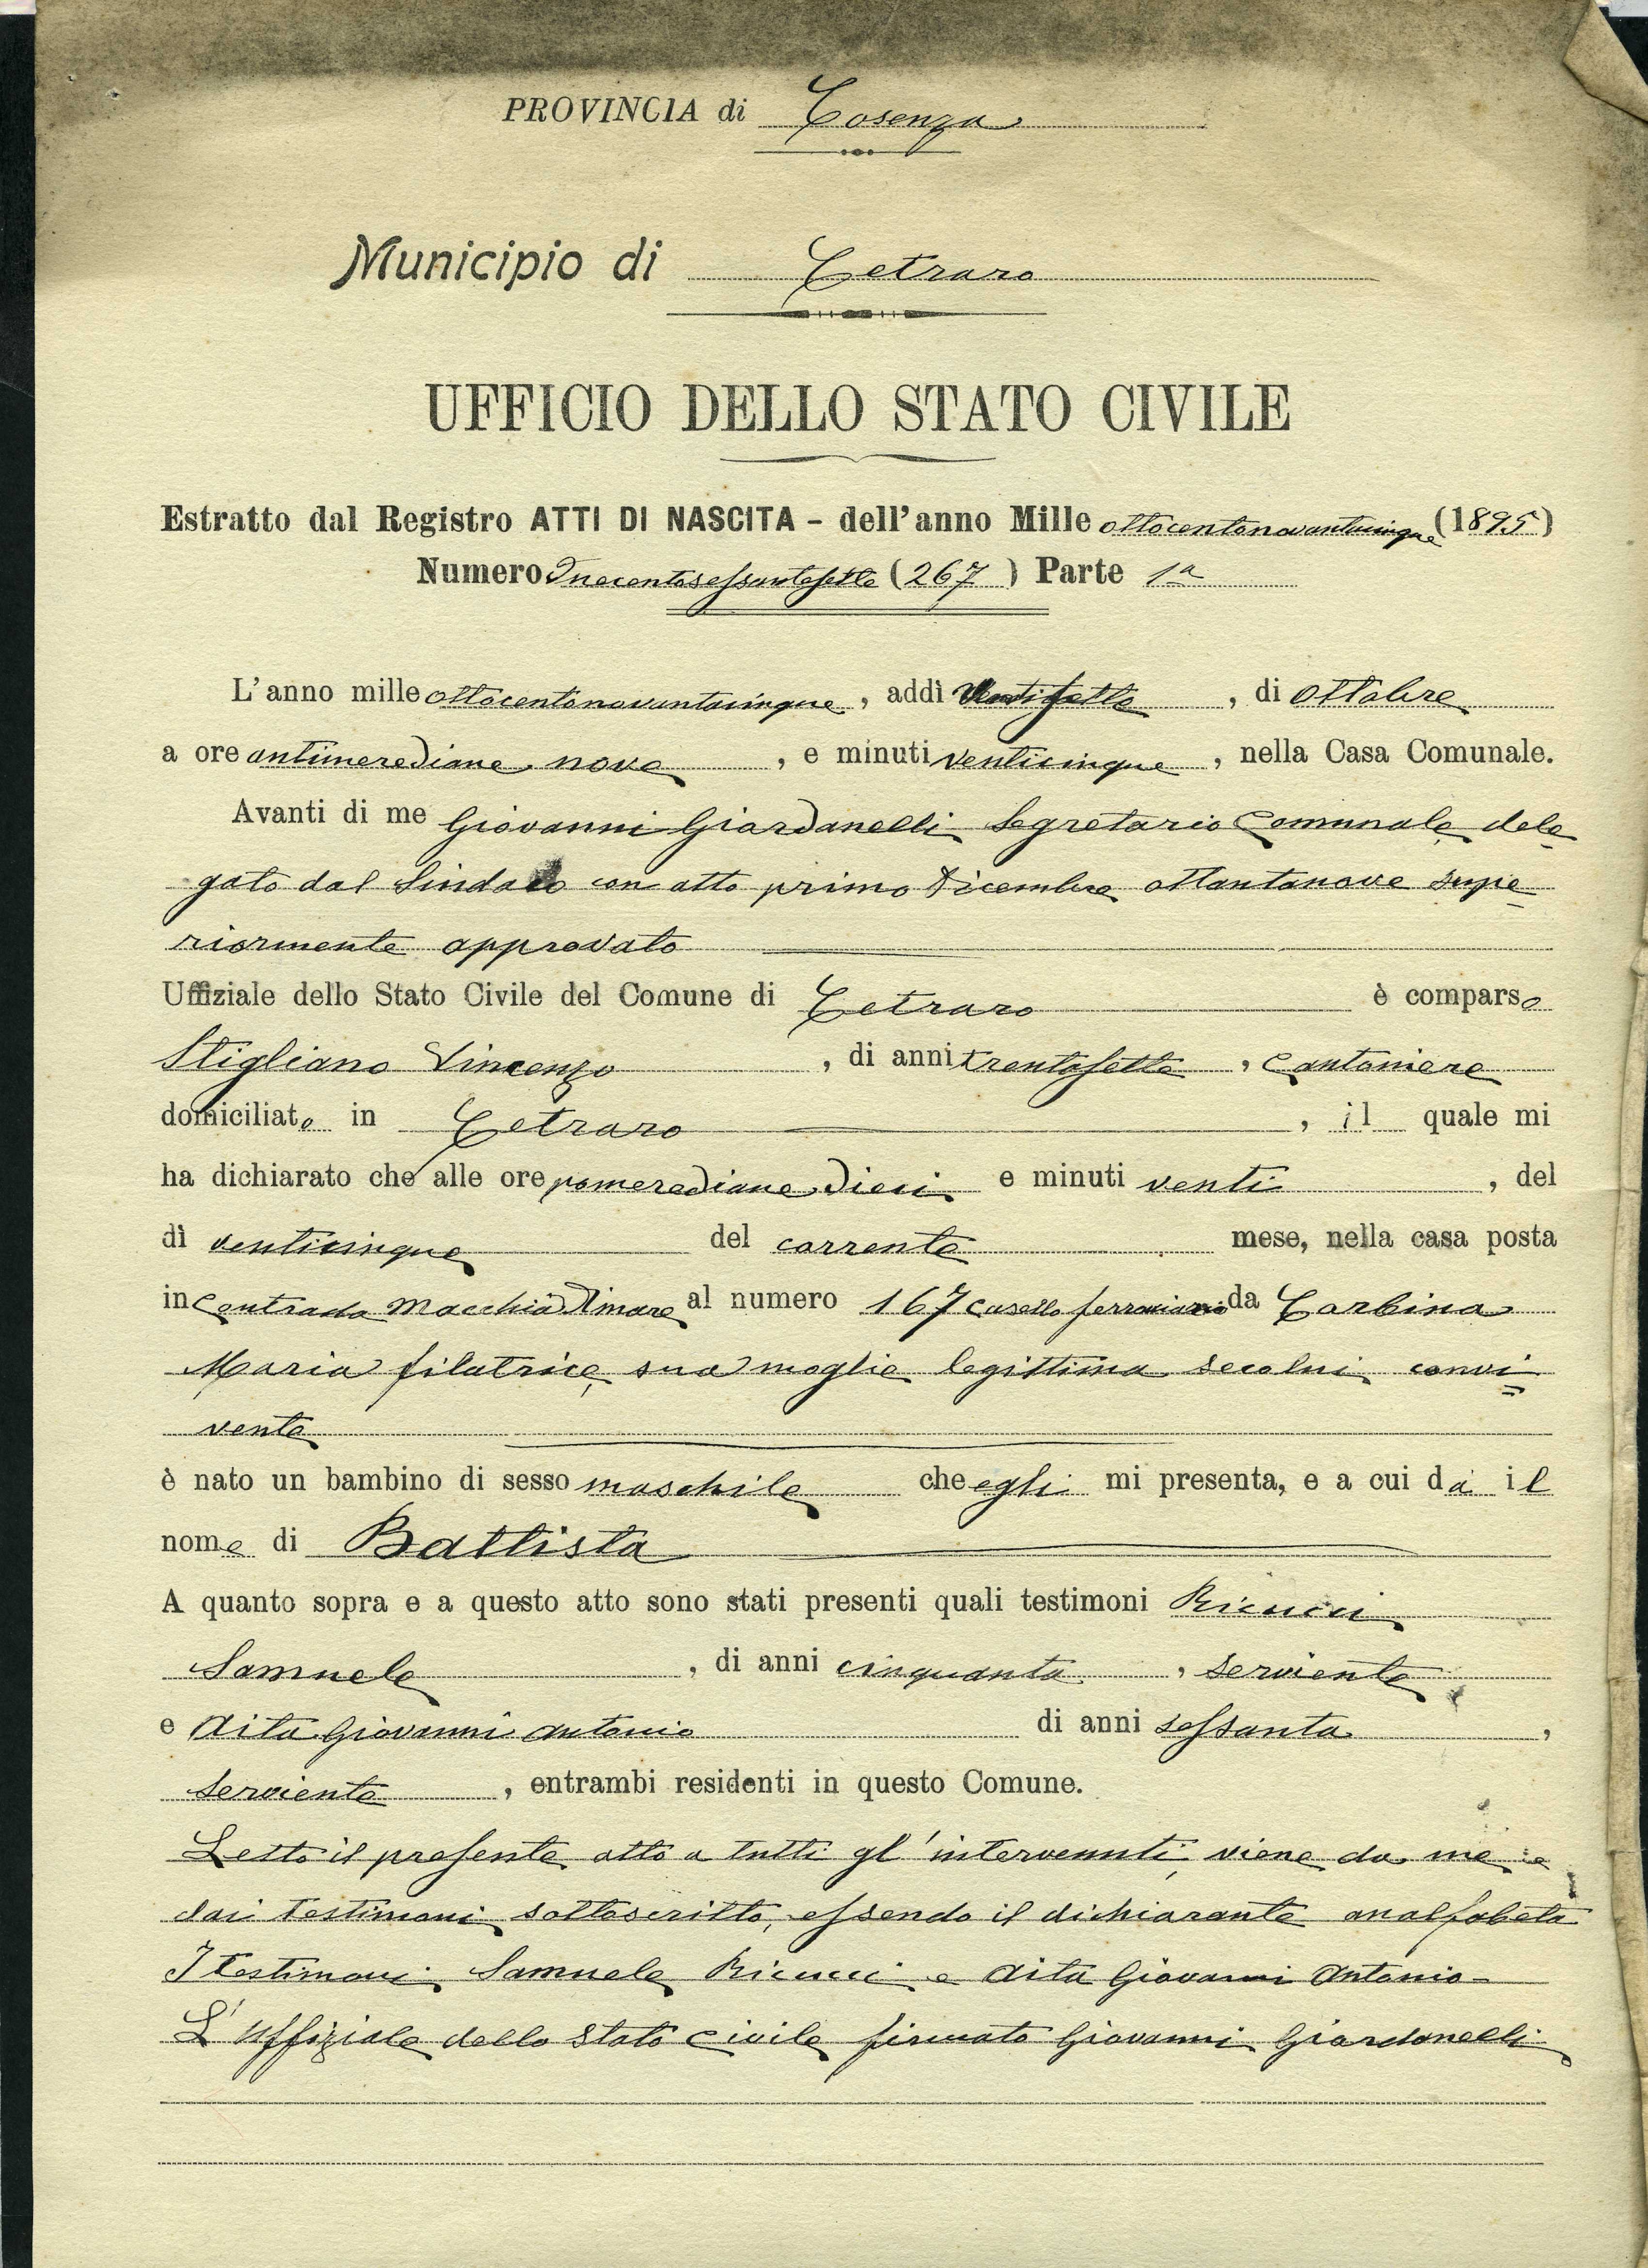 PROVINCIA di Cosenza
Municipio di Cetraro
UFFICIO DELLO STATO CIVILE
Estratto dal Registro ATTI DI NASCITA - dell'anno Mille ottocentonovantacinque (1895)
Numero Duecentosessantasette (267) Parte 1a
L'anno mille ottocentonovantacinque, addì Ventisette, di ottobre
a ore antimerediane nove, e minuti venticinque, nella Casa Comunale.
Avanti di me Giovanni Giardanelli Segretario Comunale dele
gato dal Sindaco con atto primo Dicembre ottantanove supe
riormente approvato
Uffiziale dello Stato Civile del Comune di Cetraro è comparso
Stigliano Vincenzo, di anni trentasette, Cantoniere
domiciliato in Cetraro, il quale mi
ha dichiarato che alle ore pomerediane Dieci e minuti venti, del
dì venticinque del corrente mese, nella casa posta
in Contrada Macchia di mare al numero 167 casello ferroviario da Carbina
Maria filatrice, sua moglie legittima secolui convi
vente
è nato un bambino di sesso maschile che egli mi presenta, e a cui dà il
nome di Battista
A quanto sopra e a questo atto sono stati presenti quali testimoni Ricucci
Samuele, di anni cinquanta, serviente
e Aita Giovanni Antonio di anni sessanta,
serviente, entrambi residenti in questo Comune.
Letto il presente atto a tutti gl'intervenuti, viene da me e
dai testimoni sottoscritto, essendo il dichiarante analfabeta
I testimoni: Samuele Ricucci e Aita Giovanni Antonio-
L'Uffiziale dello Stato Civile firmato Giovanni Giardanelli